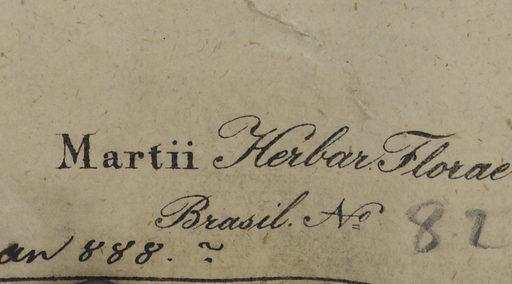 Martii Herbar. Florae
Brasil. No 82
an 888. ?